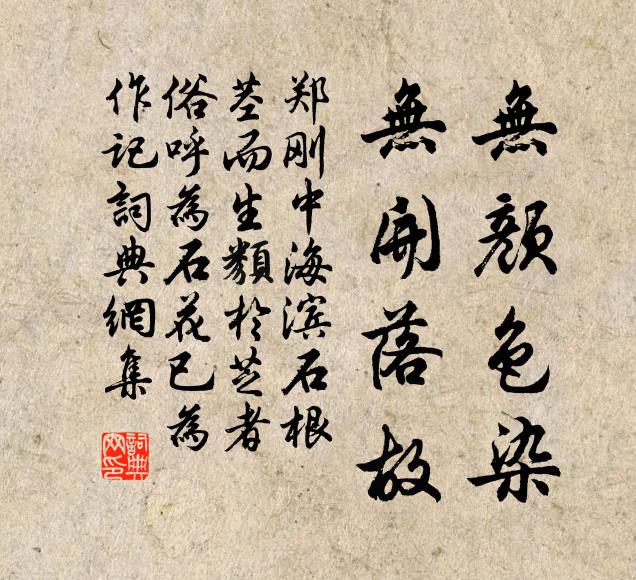 無顏色染
無開落故
郑刚中海滨石根
茎而生類於芝者
俗呼為石花已為
作记詞典網集
詞典網印